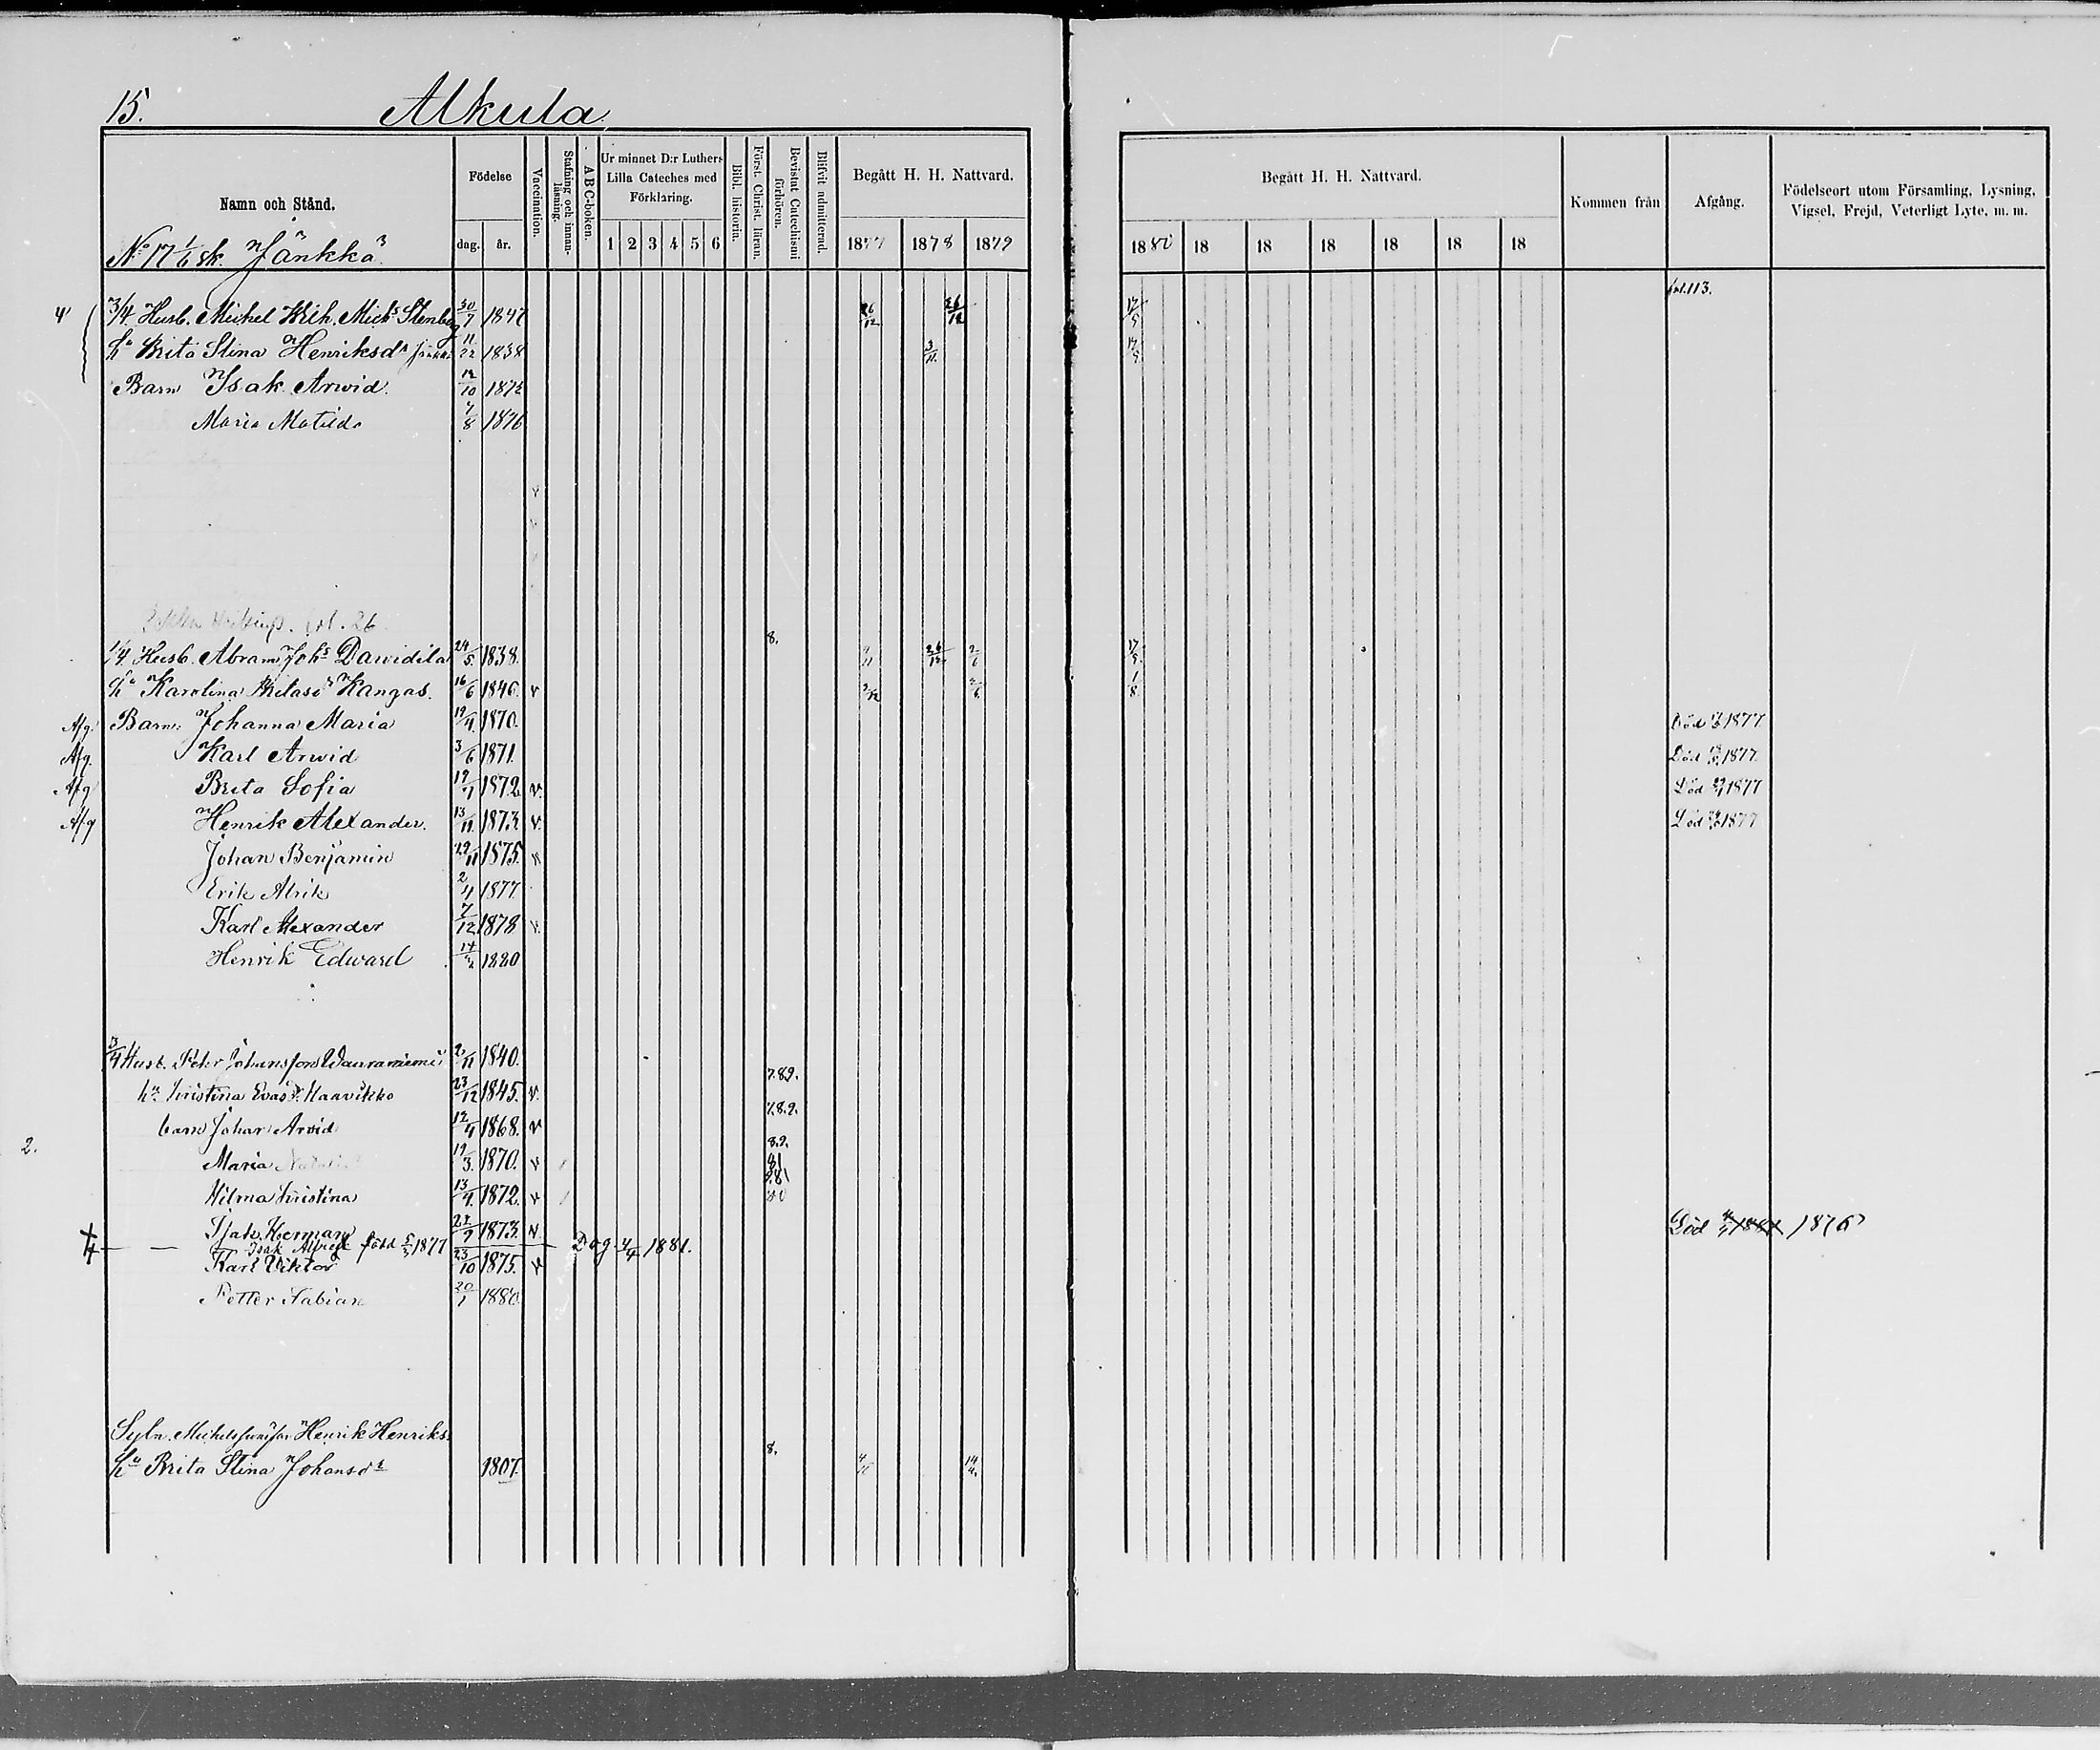 15. Alkula
Namn och Stånd.
Födelse
dag. år.
Vaccination.
Stafning och innan-läsning.
ABC-boken.
Ur minnet D:r Luthers Lilla Cateches med Förklaring.
1 2 3 4 5 6
Bibl. historia.
Först. Christ. läran.
Bevistat Catechismi förhören.
Blifvit admitterad.
Begått H. H. Nattvard.
1877 1878 1879
Begått H. H. Nattvard.
1880 18 18 18 18 18 18
Kommen från
Afgång.
Födelseort utom Församling, Lysning, Vigsel, Frejd, Veterligt Lyte, m. m.
No 17 1/6 sk. Jänkkä
fol. 113.
3/4 Husb. Michel Wilh. Mich:s Stenberg 30/7 1847 26/12 26/12 17/5
h:u Brita Stina Henriksdr 11/22 1838 3/11 17/5
Barn Isak Arwid. 12/10 1872
Maria Matilda 7/8 1876
fol. 26
1/4 Husb. Abram Joh:s Dawidila 24/5 1838. 8. 26/12 2/6 17/5
h:u Karolina Kangas. 16/6 1846. v 1/8
Afg. Barn: Johanna Maria 19/4 1870. Död 1877
Afg. Karl Arwid 3/6 1871. Död 1877.
Afg Brita Sofia 19/7 1872. v. Död 1877
Afg Henrik Alexander. 13/11 1873. v. Död 1877
Johan Benjamin 29/11 1875. v
Erik Alrik 2/4 1877
Karl Alexander 7/12 1878 v.
Henrik Edward 14/2 1880
3/4 Husb. Petr Johansson Wauraniemi 2/11 1840. 7.8.9.
h:u Kristina Evasd. Maavikko 23/12 1845. v. 7.8.9.
barn Johan Arvid 12/4 1868. v 8.9.
2. Maria 19/3 1870. v 81
Hilma Kristina 13/4 1872. v 80
Isak Herman 27/9 1873. v. Död 1881 1876
Isak Alfred född 5/3 1877 Dog 4/4 1881.
Karl Viktor 23/10 1875. v
Petter Fabian 20/1 1880.
Sytn. Henrik Henriks.
h:u Brita Stina Johansdr 1807. 8. 14/4